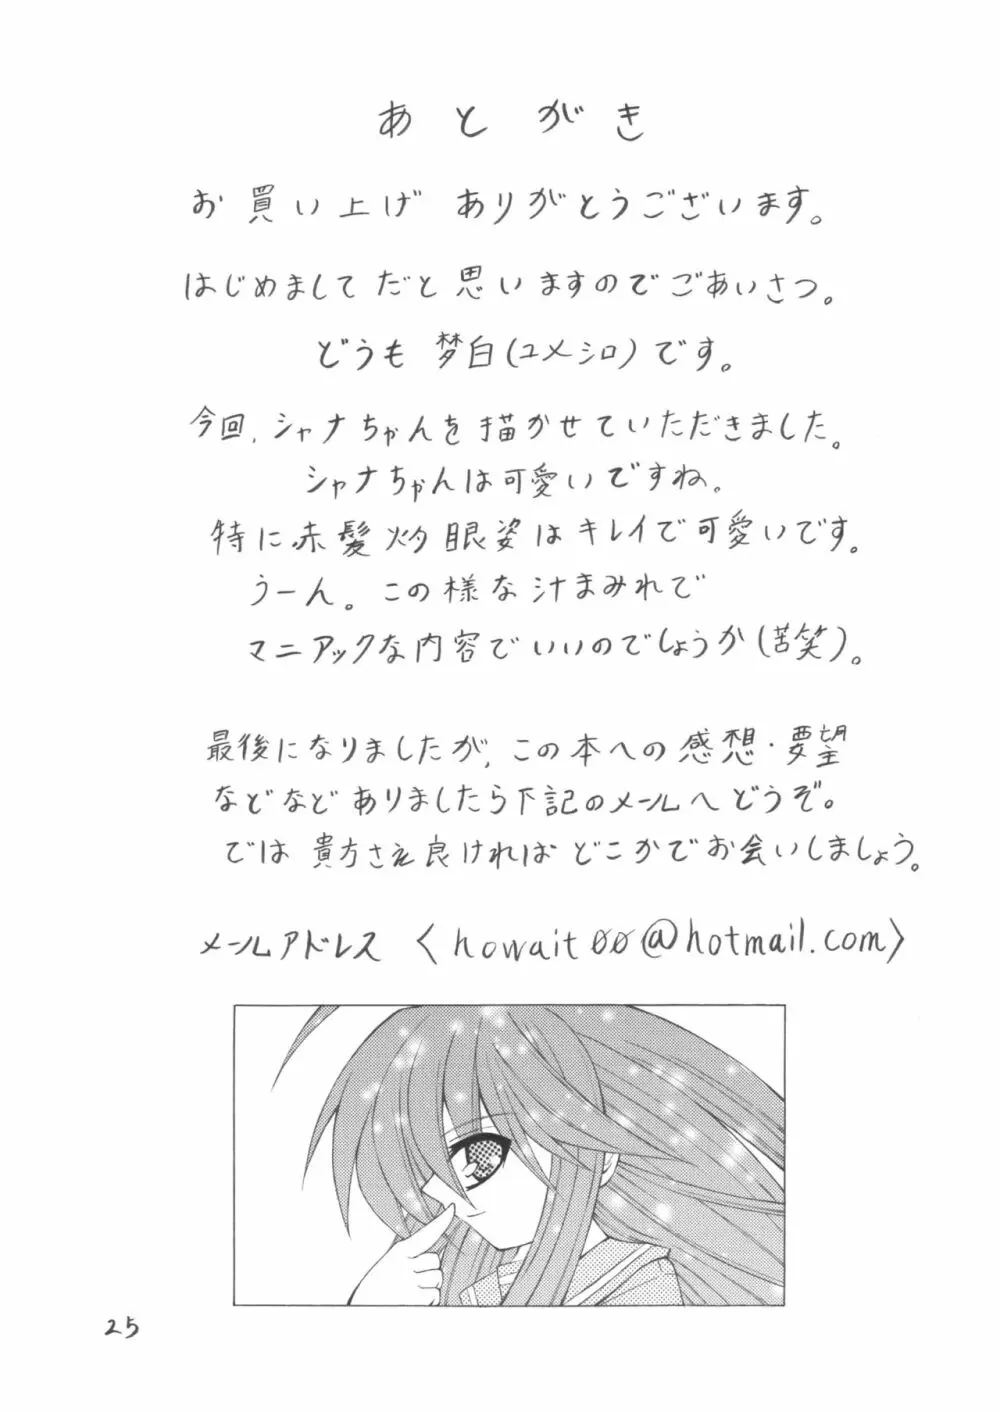 あとがき
お買い上げ ありがとうございます。
はじめましてだと思いますのでごあいさつ。
どうも 梦白(ユメシロ)です。
今回、シャナちゃんを描かせていただきました。
シャナちゃんは可愛いですね。
特に赤髪灼眼姿はキレイで可愛いです。
うーん。この様な汁まみれで
マニアックな内容でいいのでしょうか(苦笑)。
最後になりましたが、この本への感想・要望
などなどありましたら下記のメールへどうぞ。
では 貴方さえ良ければ どこかでお会いしましょう。
メールアドレス 〈howait00@hotmail.com〉
25